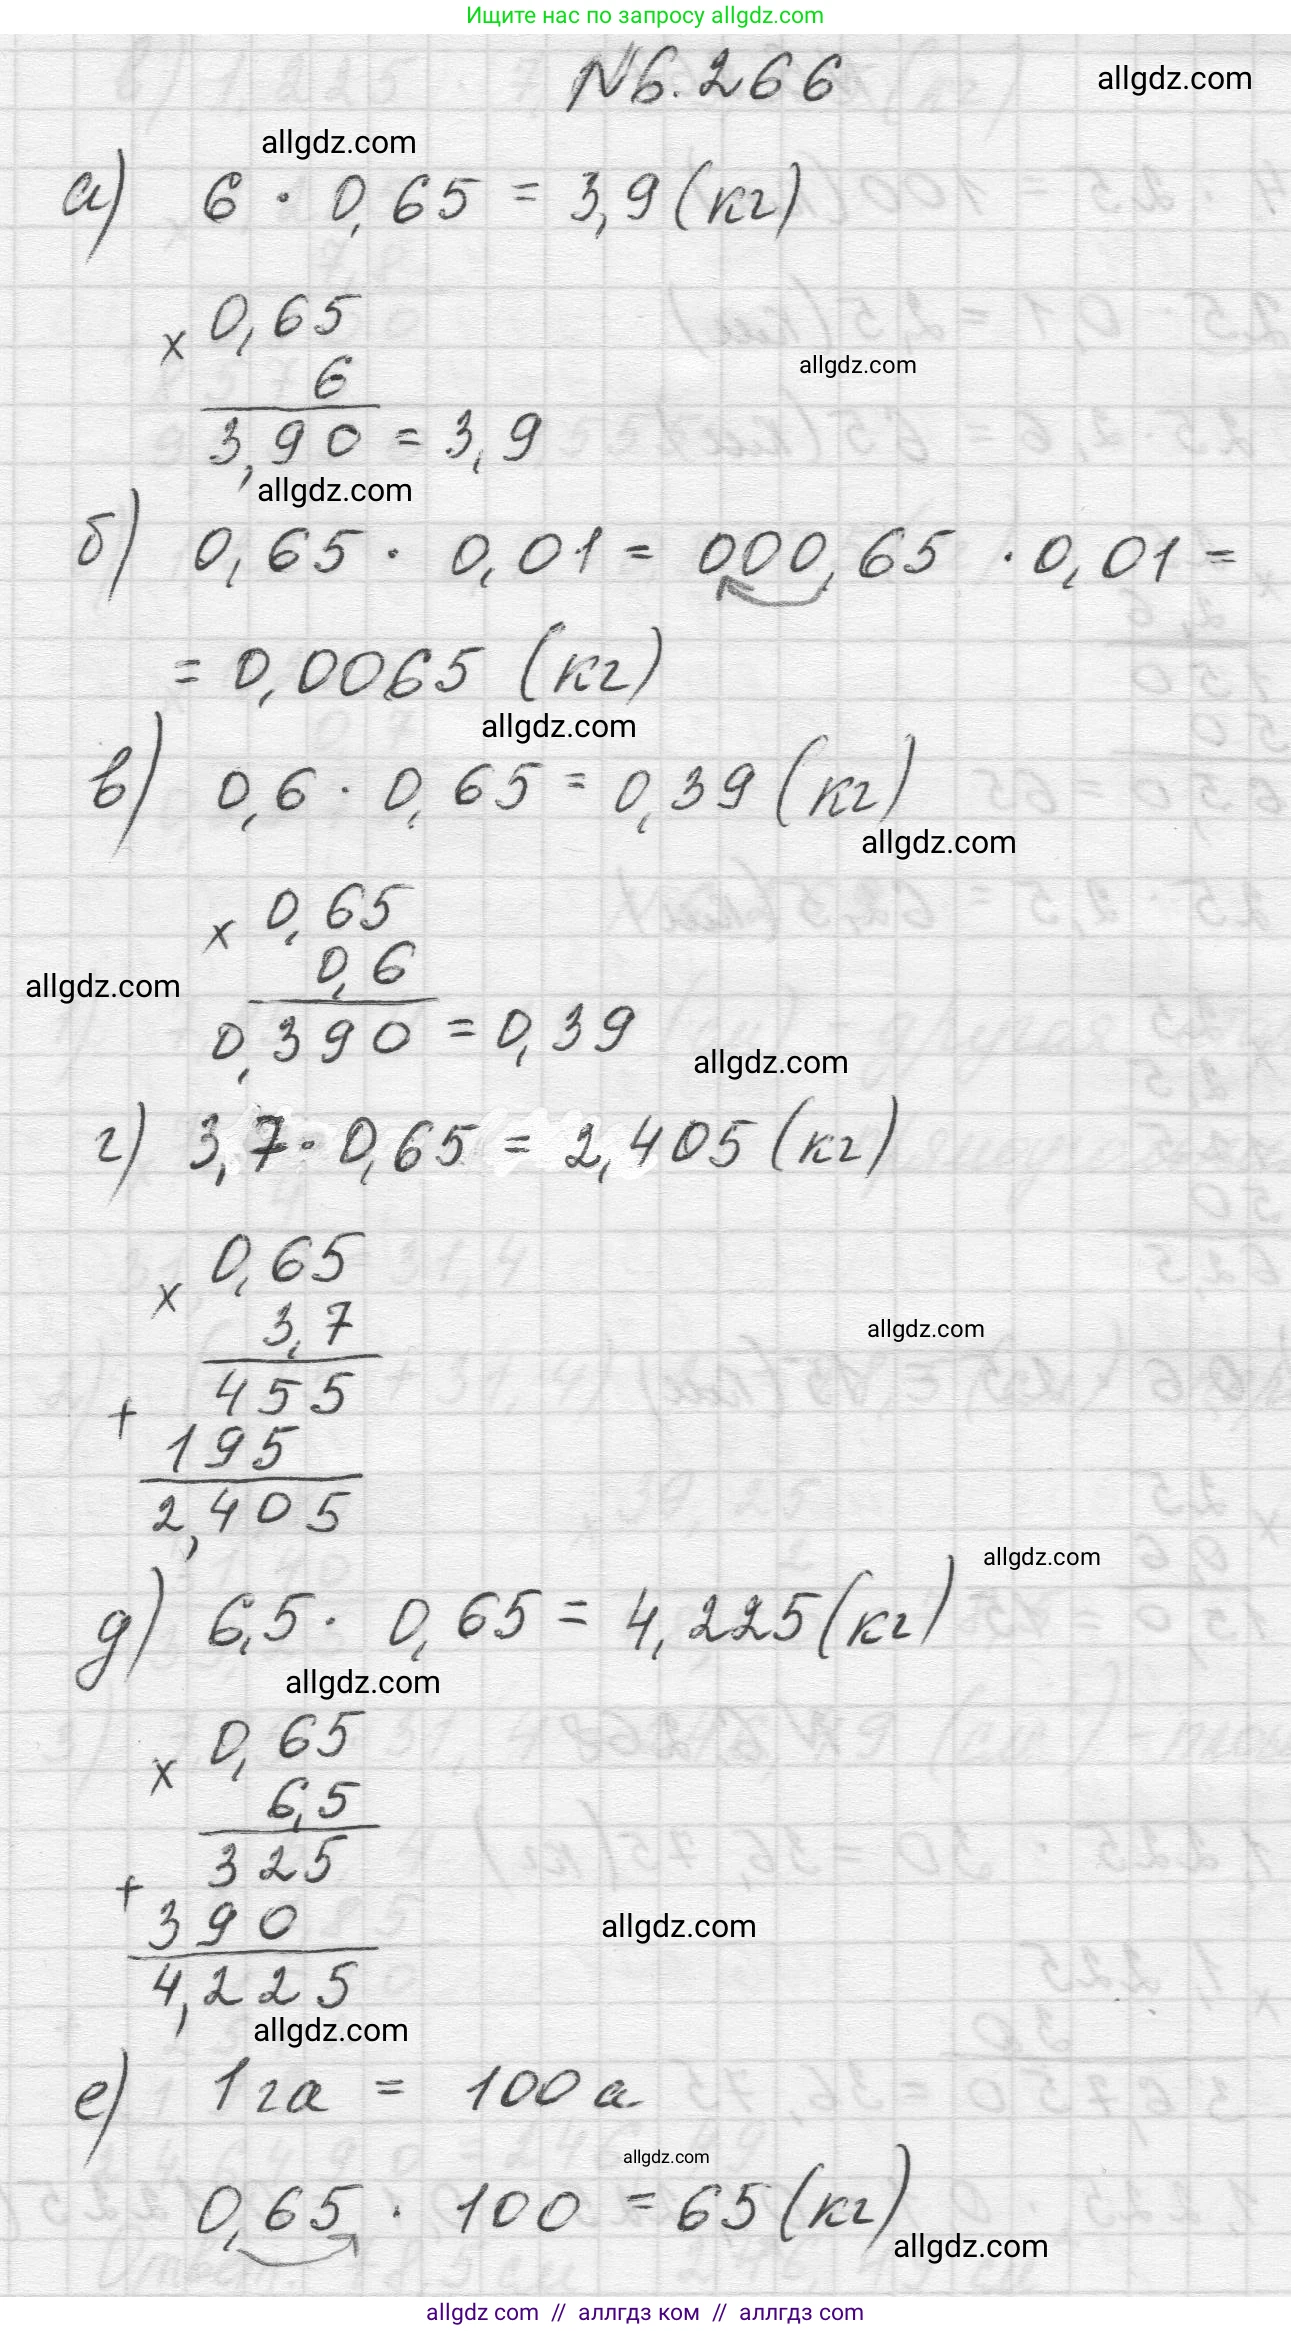 Ищите нас по запросу allgdz.com
№6.266
allgdz.com
allgdz.com
а) 6 · 0,65 = 3,9 (кг)
× 0,65
6
allgdz.com
3,90 = 3,9
allgdz.com
б) 0,65 · 0,01 = 000,65 · 0,01 =
= 0,0065 (кг)
allgdz.com
в) 0,6 · 0,65 = 0,39 (кг)
allgdz.com
× 0,65
0,6
allgdz.com
0,390 = 0,39
allgdz.com
г) 3,7 · 0,65 = 2,405 (кг)
× 0,65
3,7
allgdz.com
455
+
195
2,405
allgdz.com
д) 6,5 · 0,65 = 4,225 (кг)
allgdz.com
× 0,65
6,5
325
+
390
allgdz.com
4,225
allgdz.com
е) 1 га = 100 а.
allgdz.com
0,65 · 100 = 65 (кг)
allgdz.com
allgdz com // аллгдз ком // аллгдз com